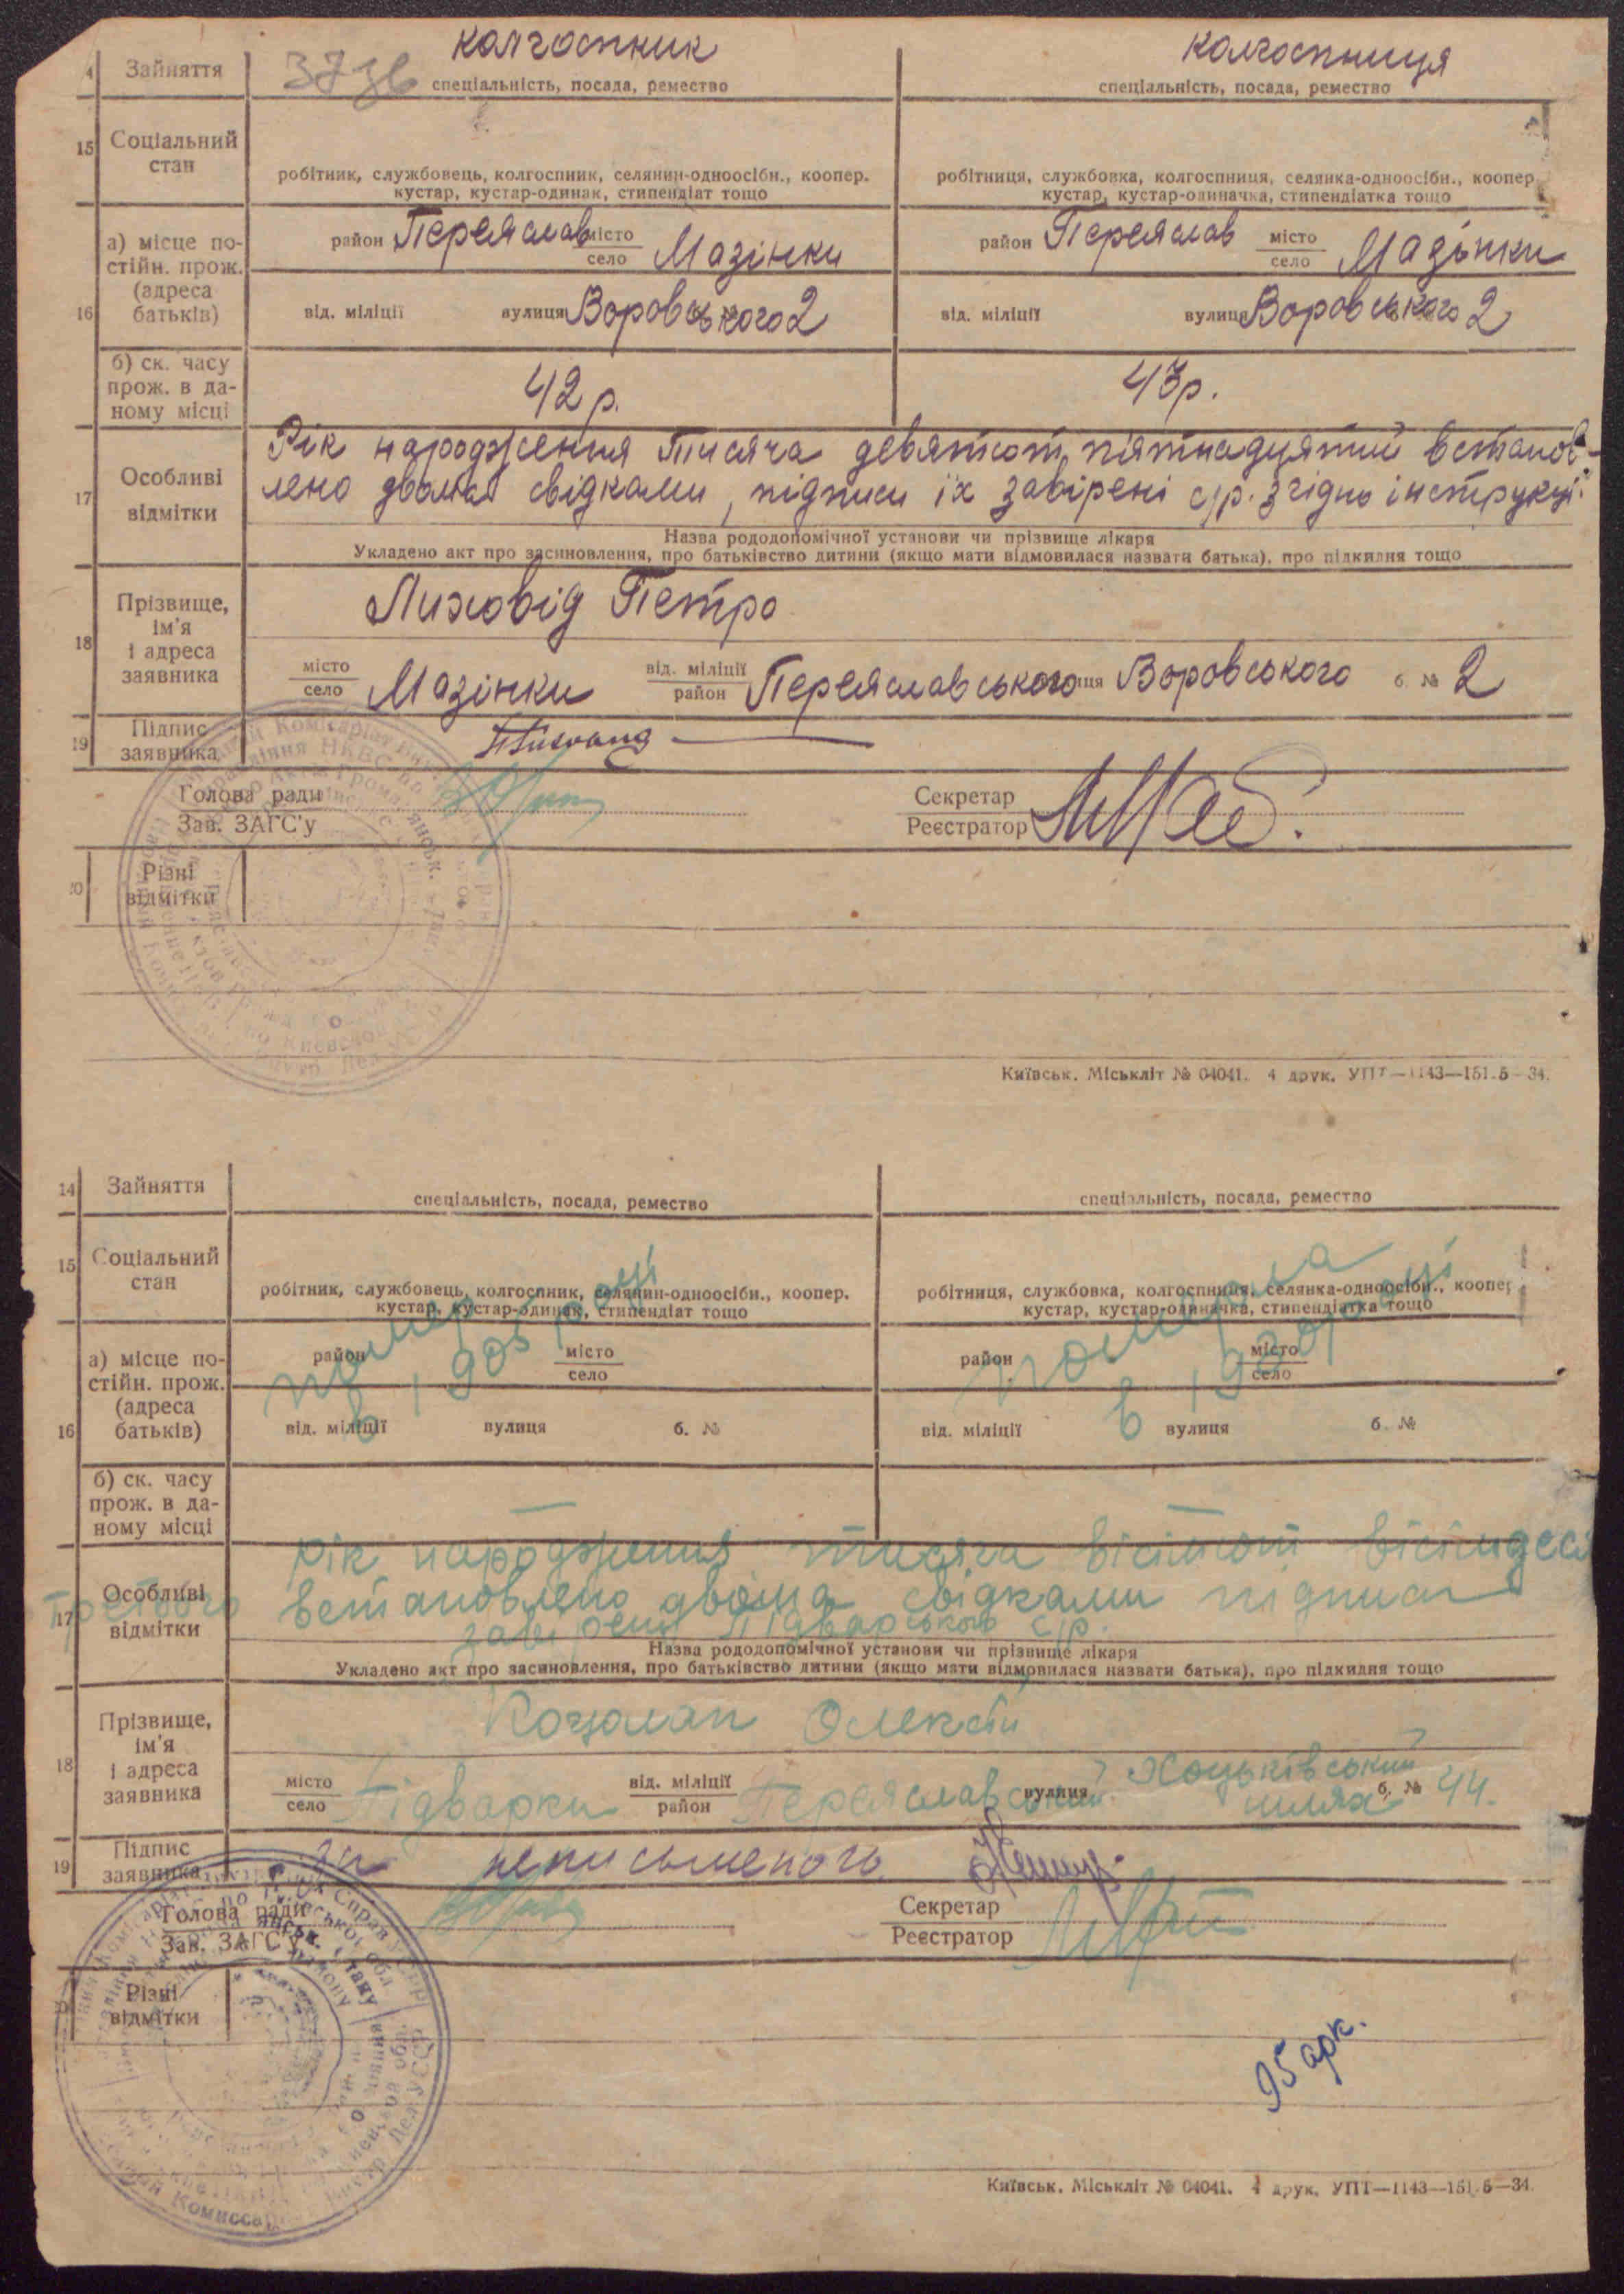 колгоспник колгоспниця
4 Зайняття спеціальність, посада, ремество спеціальність, посада, ремество
15 Соціальний стан
робітник, службовець, колгоспник, селянин-одноосібн., коопер. робітниця, службовка, колгоспниця, селянка-одноосібн., коопер.
кустар, кустар-одинак, стипендіат тощо кустар, кустар-одиначка, стипендіатка тощо
16 а) місце постійн. прож. (адреса батьків)
район Переяслав місто село Мазінки район Переяслав місто село Мазінки
від. міліції вулиця Воровського 2 від. міліції вулиця Воровського 2
б) ск. часу прож. в даному місці 42 р. 43 р.
17 Особливі відмітки
Рік народження тисяча девятсот п'ятнадцятий встанов-
лено двома свідками, підписи їх завірені с/р. згідно інструкції
Назва рододопомічної установи чи прізвище лікаря
Укладено акт про засиновлення, про батьківство дитини (якщо мати відмовилася назвати батька), про підкидня тощо
18 Прізвище, ім'я і адреса заявника
Лиховід Петро
місто село Мазінки від. міліції район Переяславського вулиця Воровського б. № 2
19 Підпис заявника
Голова ради Секретар
Зав. ЗАГС'у Реєстратор
20 Різні відмітки
Київськ. Міськліт № 04041. 4 друк. УПТ—1143—151.5—34.
14 Зайняття спеціальність, посада, ремество спеціальність, посада, ремество
15 Соціальний стан
робітник, службовець, колгоспник, селянин-одноосібн., коопер. робітниця, службовка, колгоспниця, селянка-одноосібн., коопер
кустар, кустар-одинак, стипендіат тощо кустар, кустар-одиначка, стипендіатка тощо
16 а) місце постійн. прож. (адреса батьків)
район місто село район місто село
помер померла
в році в році
від. міліції вулиця б. № від. міліції вулиця б. №
б) ск. часу прож. в даному місці
17 Особливі відмітки
рік народження тисяча вісімсот вісімдеся
третього встановлено двома свідками підписи
завірені Підварською с/р.
Назва рододопомічної установи чи прізвище лікаря
Укладено акт про засиновлення, про батьківство дитини (якщо мати відмовилася назвати батька), про підкидня тощо
18 Прізвище, ім'я і адреса заявника
Коцолап Олексій
місто село Підварки від. міліції район Переяславський вулиця Хоцьківський шлях б. № 44.
19 Підпис заявника за неписьменого
Голова ради Секретар
Зав. ЗАГС'у Реєстратор
Різні відмітки
95 арк.
Київськ. Міськліт № 04041. 4 друк. УПТ—1143—151.5—34.